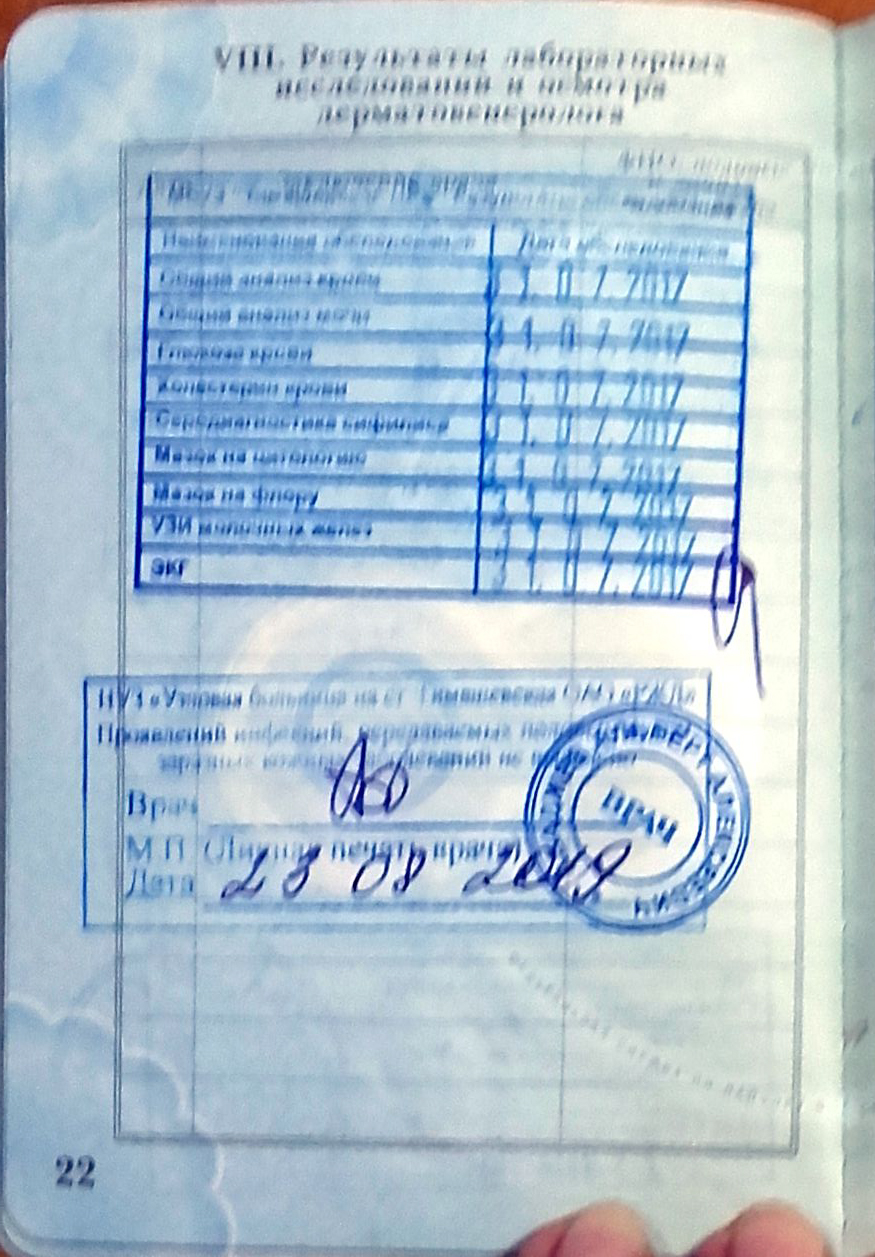 VIII. Результаты лабораторных
исследований и осмотра
дерматовенеролога
Наименование исследования Дата
Общий анализ крови 31.07.2017
Общий анализ мочи 31.07.2017
Глюкоза крови
Холестерин крови 31.07.2017
Серодиагностика сифилиса 31.07.2017
Мазок на цитологию 31.07.2017
Мазок на флору 31.07.2017
УЗИ молочных желез 31.07.2017
ЭКГ 31.07.2017
НУЗ «Узловая больница на ст. Тимашевская ОАО «РЖД»
Проявлений инфекций, передаваемых
заразных кожных заболеваний не
Врач
М.П. (Личная печать врача)
Дата 23 08 2019
ВРАЧ
22